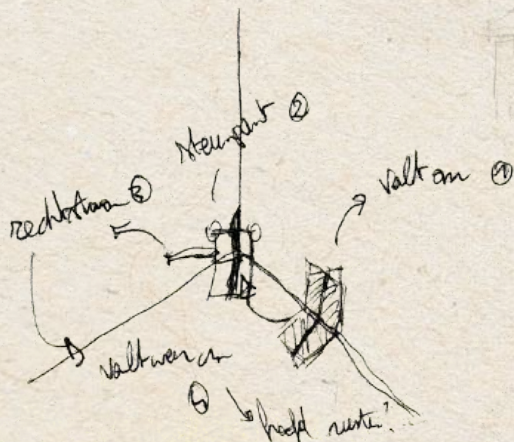 steunpunt ②
valt om ①
rechtstaan ③
valt weer om
④ hoofd rusten?...